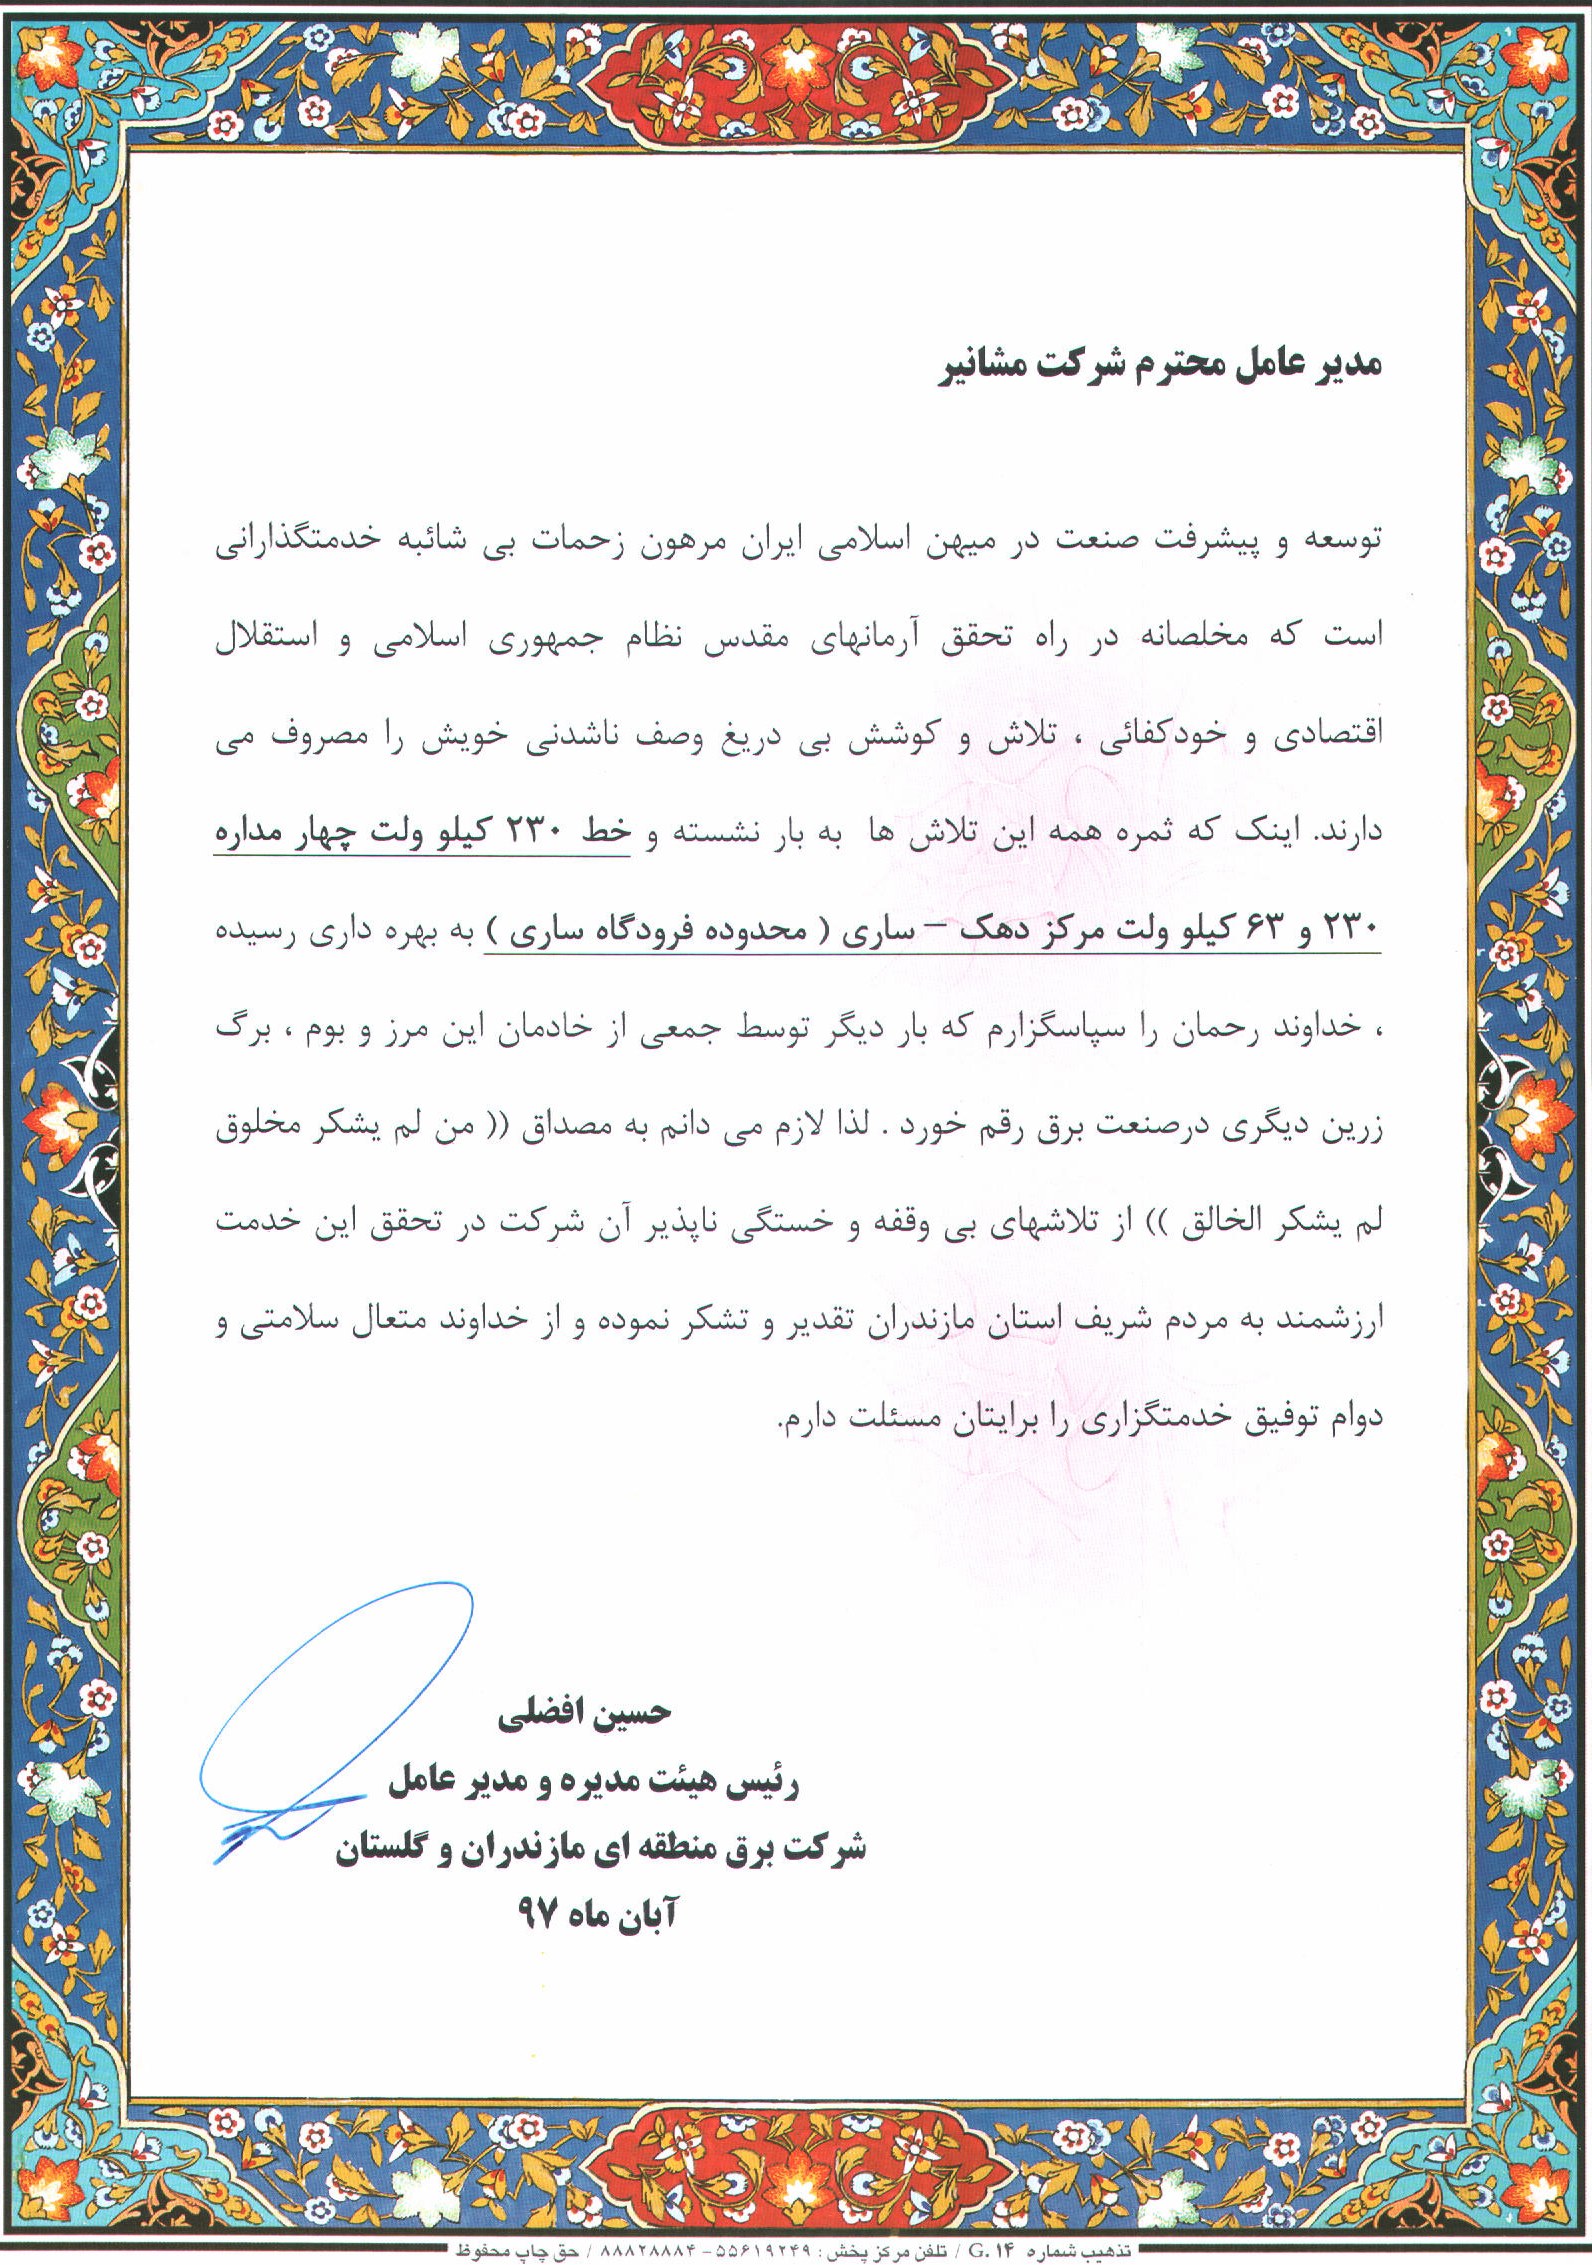 مدیر عامل محترم شرکت مشانیر
توسعه و پیشرفت صنعت در میهن اسلامی ایران مرهون زحمات بی شائبه خدمتگذارانی
است که مخلصانه در راه تحقق آرمانهای مقدس نظام جمهوری اسلامی و استقلال
اقتصادی و خودکفائی ، تلاش و کوشش بی دریغ وصف ناشدنی خویش را مصروف می
دارند. اینک که ثمره همه این تلاش ها به بار نشسته و خط ۲۳۰ کیلو ولت چهار مداره
۲۳۰ و ۶۳ کیلو ولت مرکز دهک – ساری ( محدوده فرودگاه ساری ) به بهره داری رسیده
، خداوند رحمان را سپاسگزارم که بار دیگر توسط جمعی از خادمان این مرز و بوم ، برگ
زرین دیگری درصنعت برق رقم خورد . لذا لازم می دانم به مصداق (( من لم یشکر مخلوق
لم یشکر الخالق )) از تلاشهای بی وقفه و خستگی ناپذیر آن شرکت در تحقق این خدمت
ارزشمند به مردم شریف استان مازندران تقدیر و تشکر نموده و از خداوند متعال سلامتی و
دوام توفیق خدمتگزاری را برایتان مسئلت دارم.
حسین افضلی
رئیس هیئت مدیره و مدیر عامل
شرکت برق منطقه ای مازندران و گلستان
آبان ماه ۹۷
تذهیب شماره G.۱۴ / تلفن مرکز پخش : ۵۵۶۱۹۲۴۹ – ۸۸۸۲۸۸۸۴ / حق چاپ محفوظ